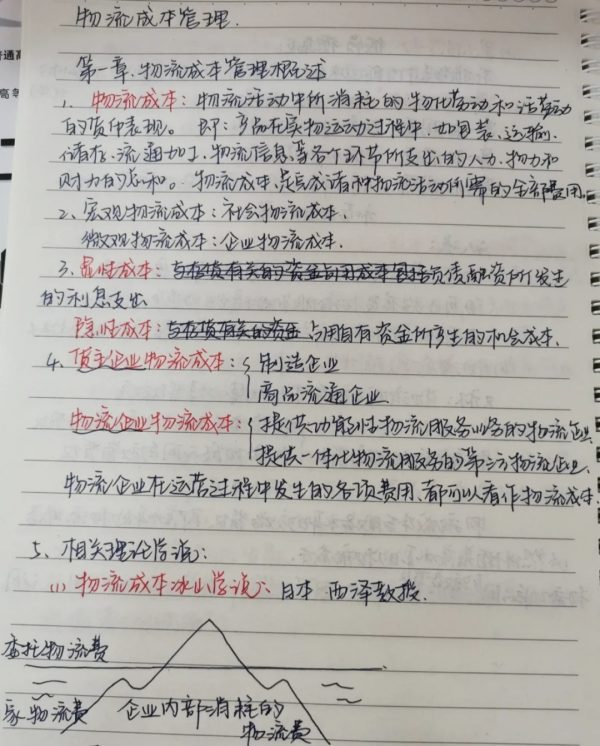 物流成本管理.
第一章.物流成本管理概述
1. 物流成本：物流活动中所消耗的物化劳动和活劳动
的货币表现。即：产品在实物运动过程中，如包装、运输、
储存、流通加工、物流信息等各个环节所支出的人力、物力和
财力的总和。物流成本是完成诸种物流活动所需的全部费用.
2、宏观物流成本：社会物流成本.
微观物流成本：企业物流成本.
3、显性成本：与存货有关的资金占用成本包括负债融资所发生
的利息支出
隐性成本：与存货有关的资金 占用自有资金所产生的机会成本.
4. 货主企业物流成本：制造企业
商品流通企业.
物流企业物流成本：提供功能性物流服务业务的物流企业
提供一体化物流服务的第三方物流企业.
物流企业在运营过程中发生的各项费用，都可以看作物流成本
5、相关理论学说：
(1) 物流成本冰山学说：日本 西泽教授.
委托物流费
家物流费 企业内部消耗的
物流费
普通高
高等